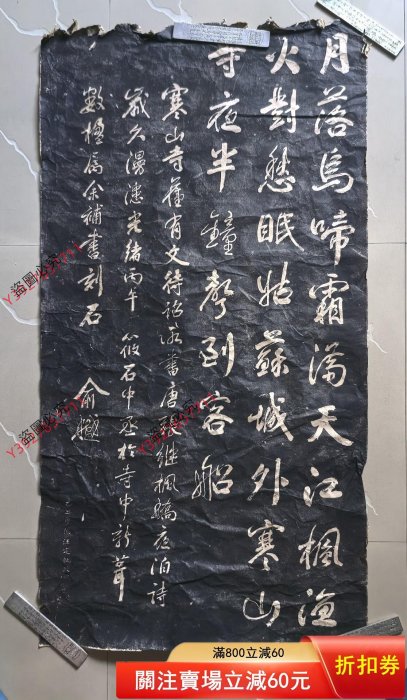 月落烏啼霜滿天江楓漁
火對愁眠姑蘇城外寒山
寺夜半鐘聲到客船
寒山寺舊有文待詔所書唐張繼楓橋夜泊詩
歲久漫漶光緒丙午筱石中丞於寺中新葺
數楹屬余補書刻石
俞樾
盜圖必究
滿800立減60
關注賣場立減60元
折扣券